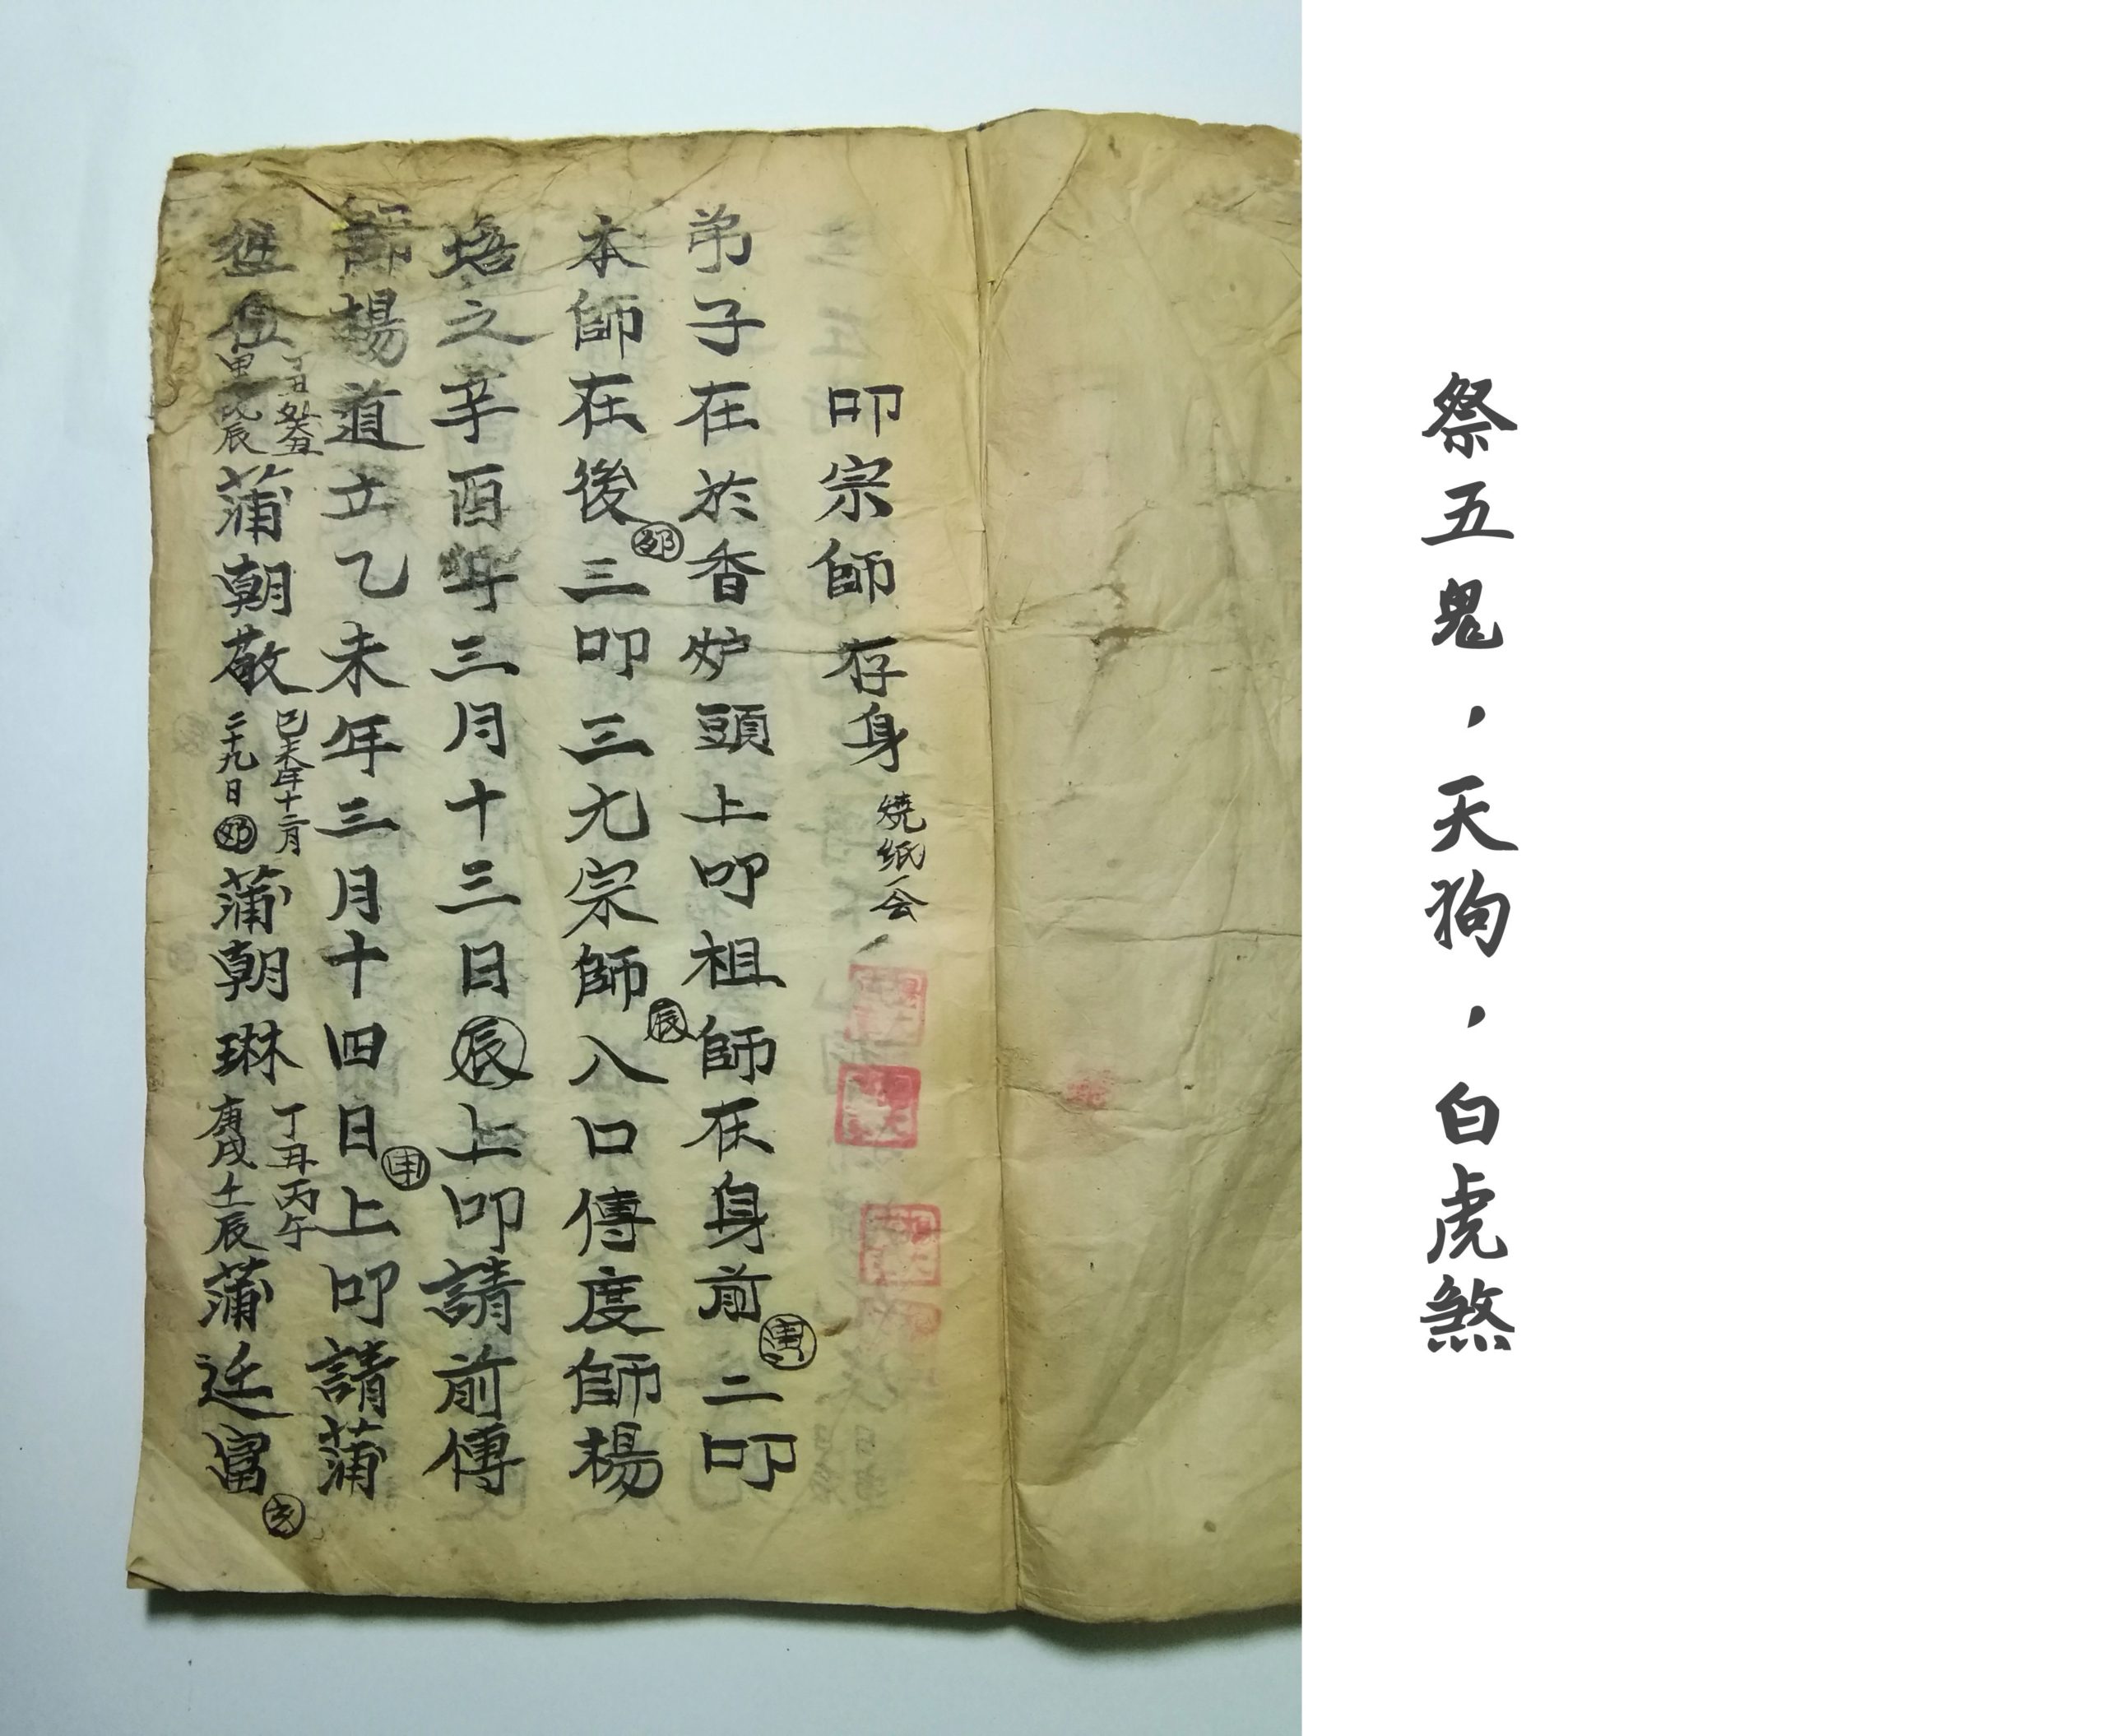 祭五鬼，天狗，白虎煞
叩宗師存身 燒紙会
弟子在於香炉頭上叩祖師在身前 二叩
本師在後 三叩三九宗師 八口傳度師楊
之辛酉年三月十三日辰上叩請前傳
師楊道立乙未年三月十四日申上叩請蒲
蒲朝敬 己未年十二月二十九日 蒲朝琳 丁丑丙午庚戌壬辰 蒲廷富